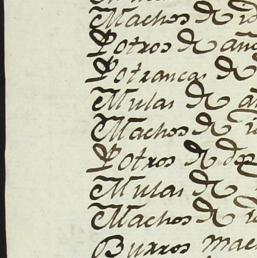 Machos de
Potros de año
Potrancas de
Mulas de
Machos de
Potros de dos
Mulas de
Machos de
Burros mac